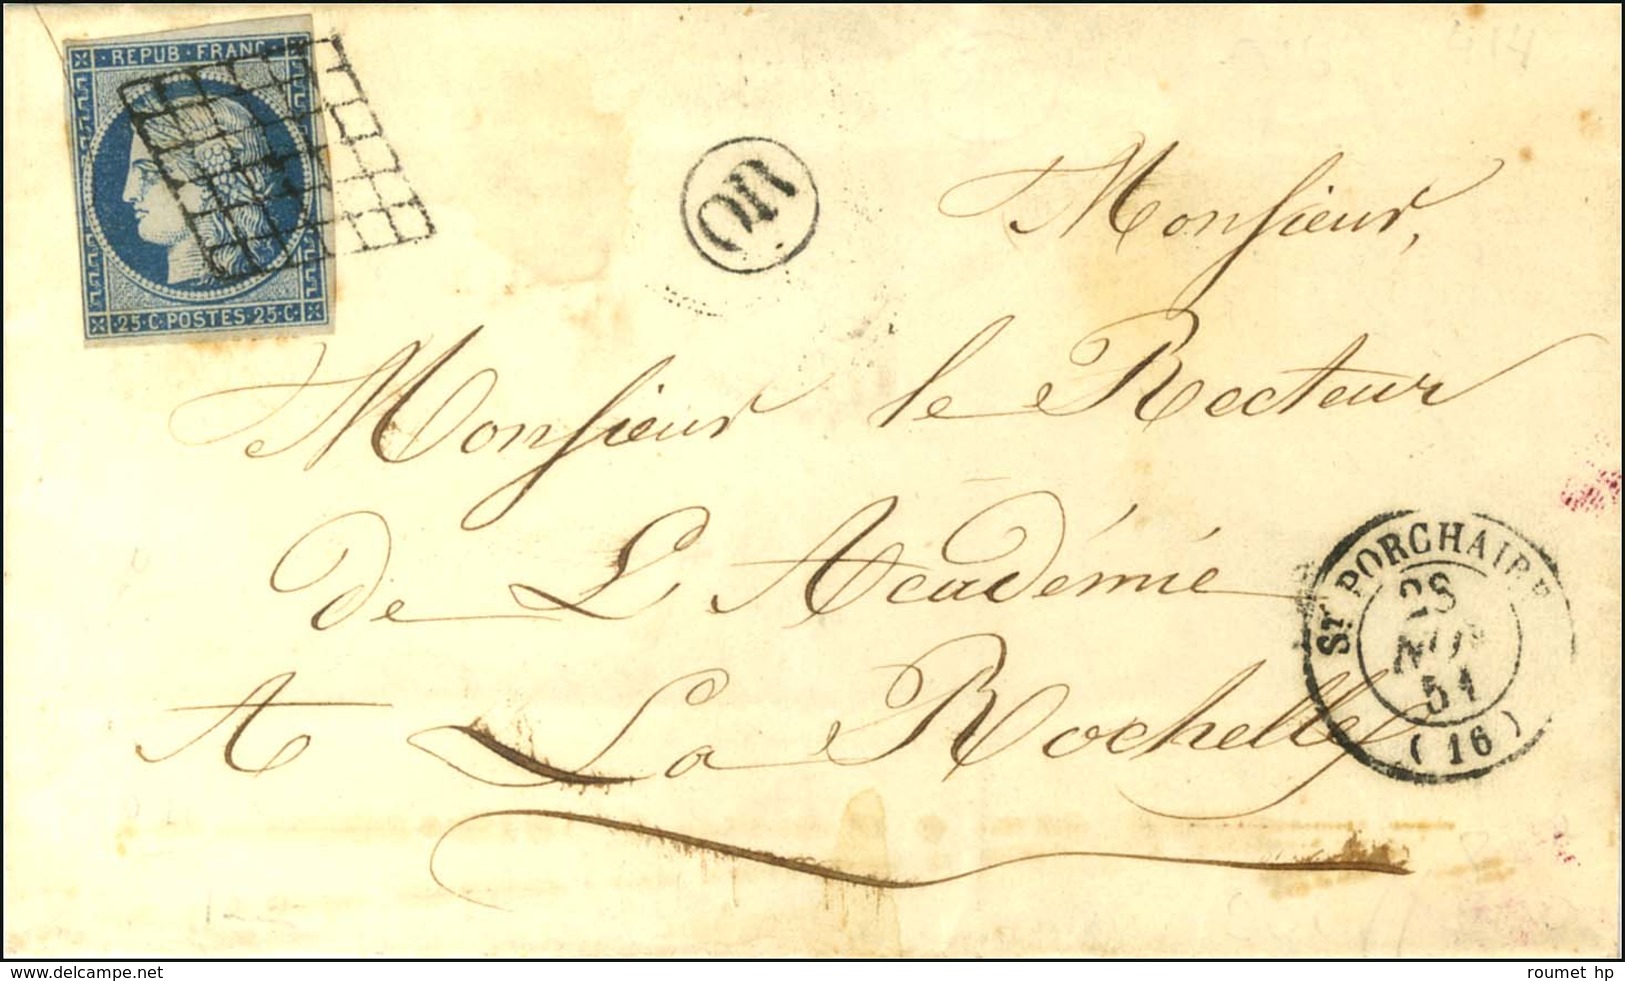 REPUB · FRANC
25 · C · POSTES · 25 · C
OR
Monsieur,
Monsieur le Recteur
de L'Académie
A La Rochelle
ST PORCHAIRE
28
NOV
51
(16)
www.delcampe.net
roumet hp